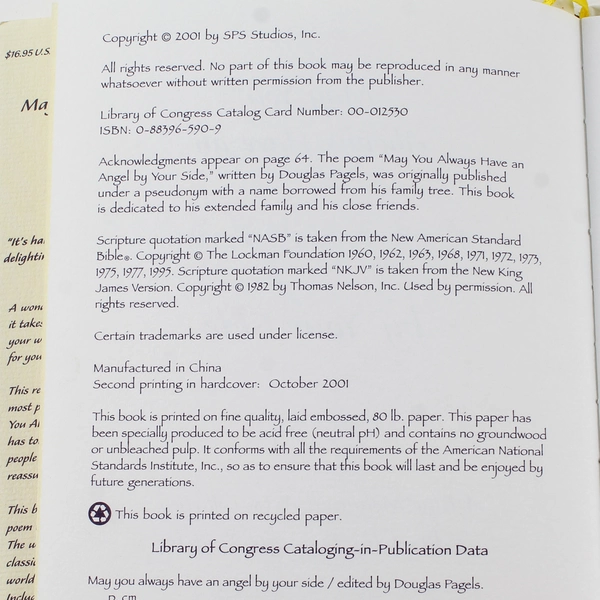 $16.95 U.S.
May
"It's ha
delightin
A won
it takes
your w
for you
This re
most p
You Al
has to
people
reassu
This b
poem
The w
classi
world
Includ
Copyright © 2001 by SPS Studios, Inc.
All rights reserved. No part of this book may be reproduced in any manner
whatsoever without written permission from the publisher.
Library of Congress Catalog Card Number: 00-012530
ISBN: 0-88396-590-9
Acknowledgments appear on page 64. The poem "May You Always Have an
Angel by Your Side," written by Douglas Pagels, was originally published
under a pseudonym with a name borrowed from his family tree. This book
is dedicated to his extended family and his close friends.
Scripture quotation marked "NASB" is taken from the New American Standard
Bible®. Copyright © The Lockman Foundation 1960, 1962, 1963, 1968, 1971, 1972, 1973,
1975, 1977, 1995. Scripture quotation marked "NKJV" is taken from the New King
James Version. Copyright © 1982 by Thomas Nelson, Inc. Used by permission. All
rights reserved.
Certain trademarks are used under license.
Manufactured in China
Second printing in hardcover: October 2001
This book is printed on fine quality, laid embossed, 80 lb. paper. This paper has
been specially produced to be acid free (neutral pH) and contains no groundwood
or unbleached pulp. It conforms with all the requirements of the American National
Standards Institute, Inc., so as to ensure that this book will last and be enjoyed by
future generations.
This book is printed on recycled paper.
Library of Congress Cataloging-in-Publication Data
May you always have an angel by your side / edited by Douglas Pagels.
p. cm.